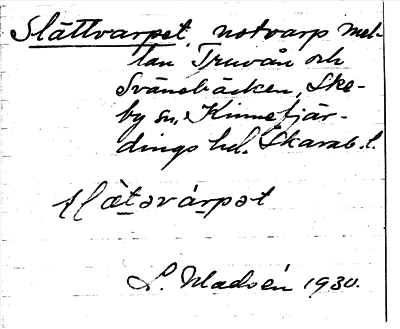 Slättvarpet, notvarp mel-
lan Truvån och
Svänsbäcken, Ske-
by sn, Kinnefjär-
dings hd. Skarab. l.
slätəvárpət
L. Modéen 1930.